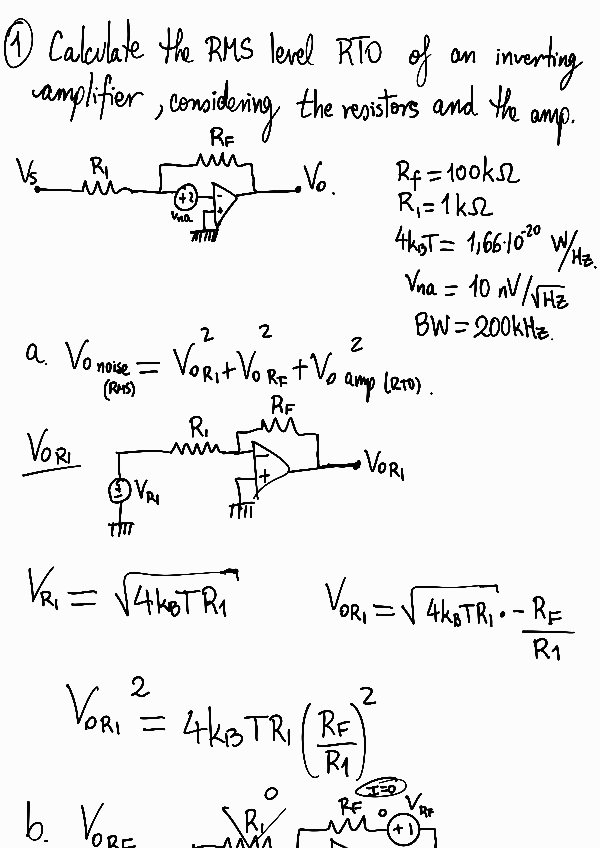 ① Calculate the RMS level RTO of an inverting
amplifier, considering the resistors and the amp.
Vs R1 RF Vo.
Vna
Rf = 100kΩ
R1 = 1kΩ
4kBT = 1,66·10^-20 W/Hz.
Vna = 10 nV/√Hz
BW = 200kHz.
a. Vo noise (RMS) = VOR1^2 + VO RF^2 + VO amp (RTO)^2.
VOR1
R1 RF VOR1
VR1
VR1 = √4kBTR1
VOR1 = √4kBTR1 · -RF/R1
VOR1^2 = 4kBTR1 (RF/R1)^2
b. VORF
R1 0 RF I=0 0 VRF